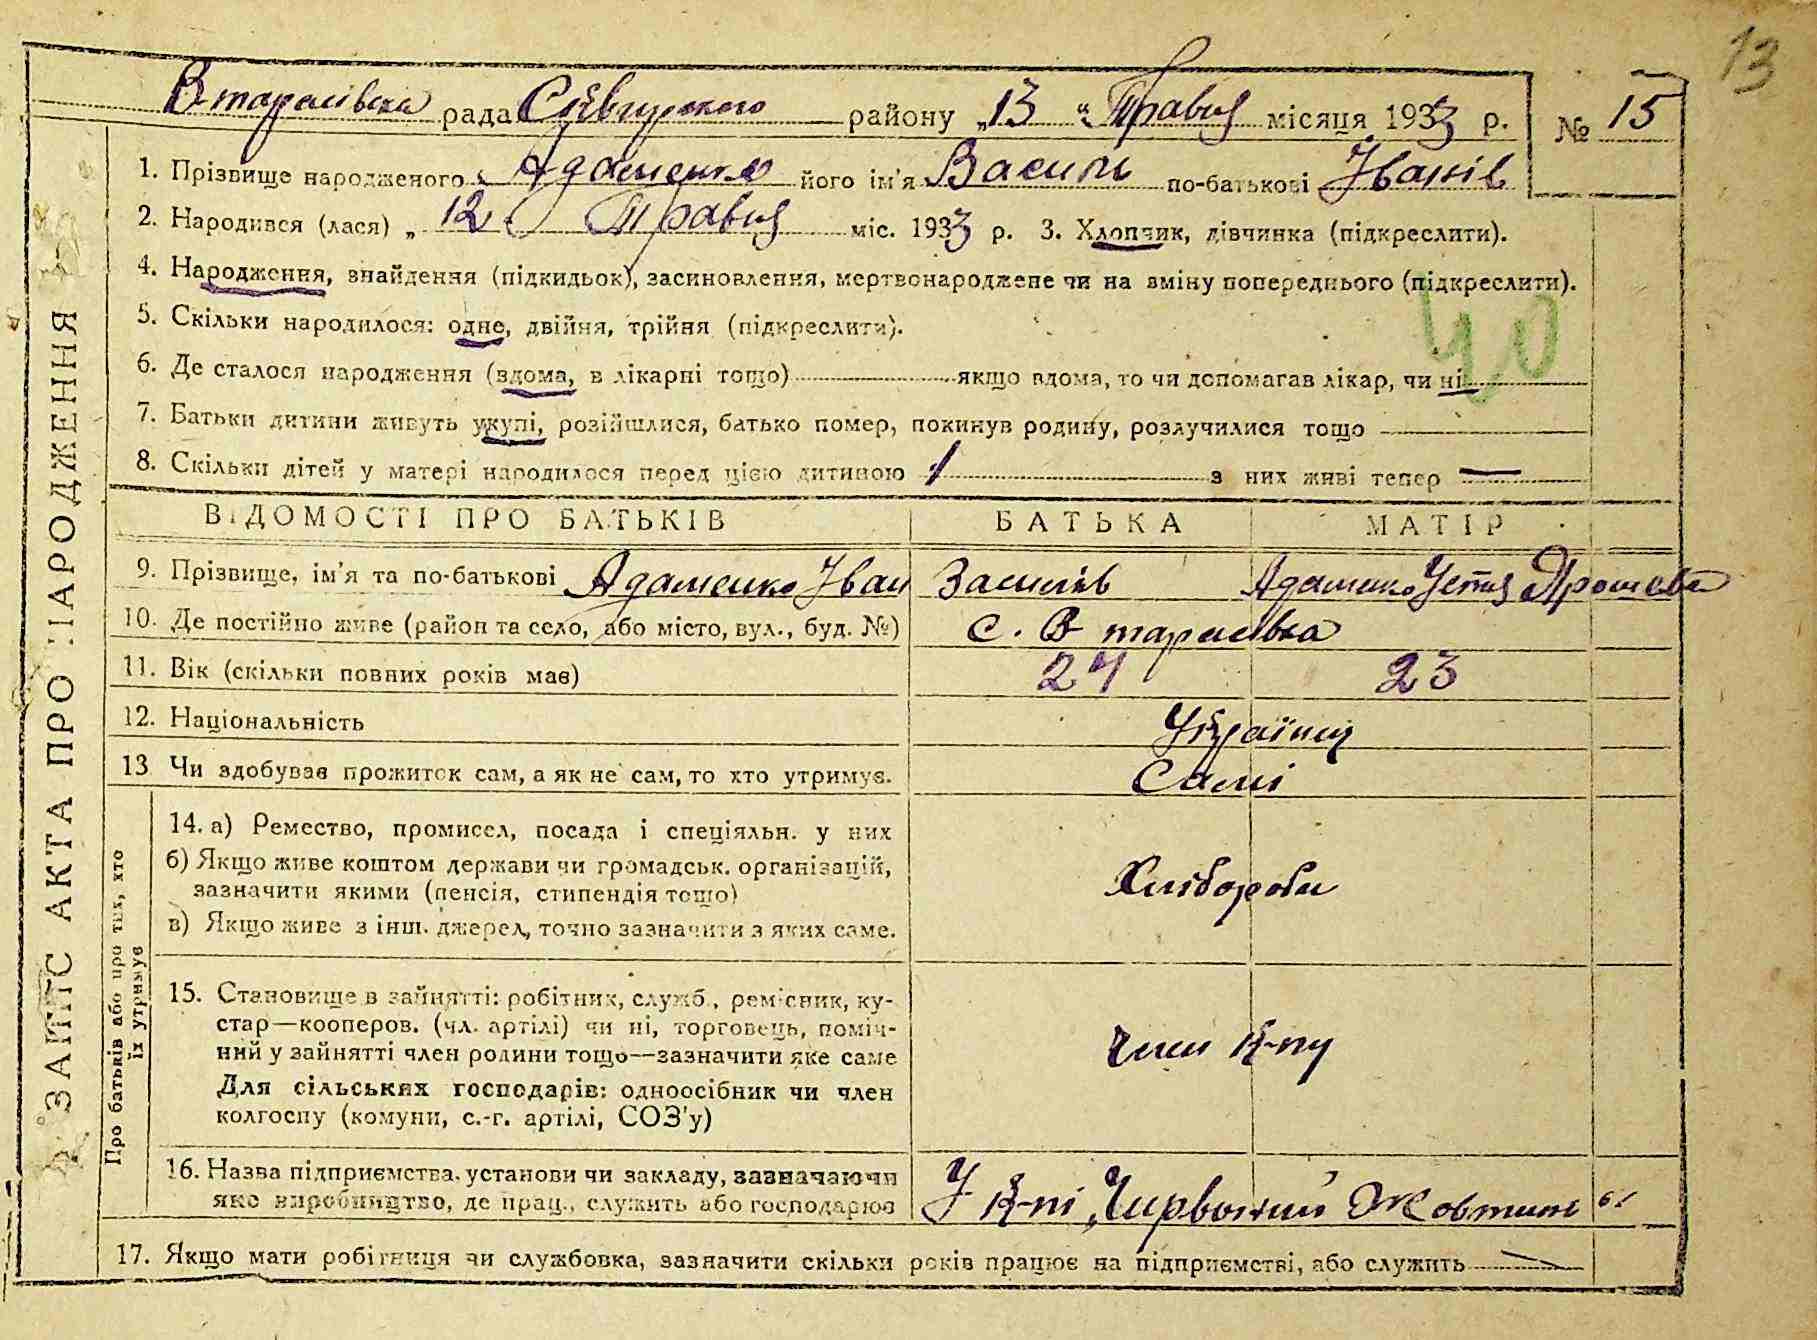 13
В-тарасівська рада Сквирського району „13“ Травня місяця 1933 р. № 15
ЗАПИС АКТА ПРО НАРОДЖЕННЯ
1. Прізвище народженого Адаменко його ім'я Василь по-батькові Іванів
2. Народився (лася) „ 12 Травня міс. 1933 р. 3. Хлопчик, дівчинка (підкреслити).
4. Народження, знайдення (підкидьок), засиновлення, мертвонароджене чи на зміну попереднього (підкреслити).
40
5. Скільки народилося: одне, двійня, трійня (підкреслити).
6. Де сталося народження (вдома, в лікарні тощо) якщо вдома, то чи допомагав лікар, чи ні
7. Батьки дитини живуть укупі, розійшлися, батько помер, покинув родину, розлучилися тощо
8. Скільки дітей у матері народилося перед цією дитиною 1 з них живі тепер —
ВІДОМОСТІ ПРО БАТЬКІВ БАТЬКА МАТІР
9. Прізвище, ім'я та по-батькові Адаменко Іван Василів Адаменко Устя
10. Де постійно живе (район та село, або місто, вул., буд. №) с. В-тарасівка
11. Вік (скільки повних років має) 24 23
12. Національність Українці
13 Чи здобуває прожиток сам, а як не сам, то хто утримує. Самі
Про батьків або про тих, хто
їх утримує
14. а) Ремество, промисел, посада і спеціяльн. у них
б) Якщо живе коштом держави чи громадськ. організацій,
зазначити якими (пенсія, стипендія тощо)
в) Якщо живе з інш. джерел, точно зазначити з яких саме.
Хлібороби
15. Становище в зайнятті: робітник, служб., ремісник, ку-
стар—кооперов. (чл. артілі) чи ні, торговець, поміч-
ний у зайнятті член родини тощо—зазначити яке саме
Для сільських господарів: одноосібник чи член
колгоспу (комуни, с.-г. артілі, СОЗ'у)
члени К-пу
16. Назва підприємства, установи чи закладу, зазначаючи
яке виробництво, де прац., служить або господарює
У К-пі „Чирвоний Жовтинь“
17. Якщо мати робітниця чи службовка, зазначити скільки років працює на підприємстві, або служить —